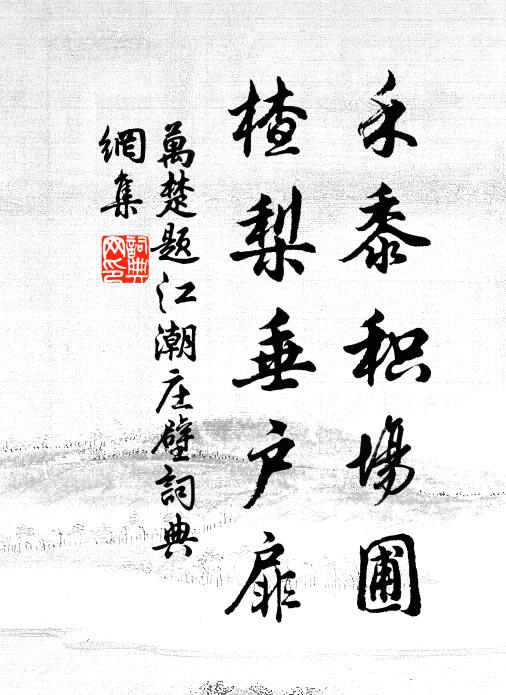 禾黍积場圃
楂梨垂户扉
萬楚题江潮庄壁詞典
網集
詞典网印